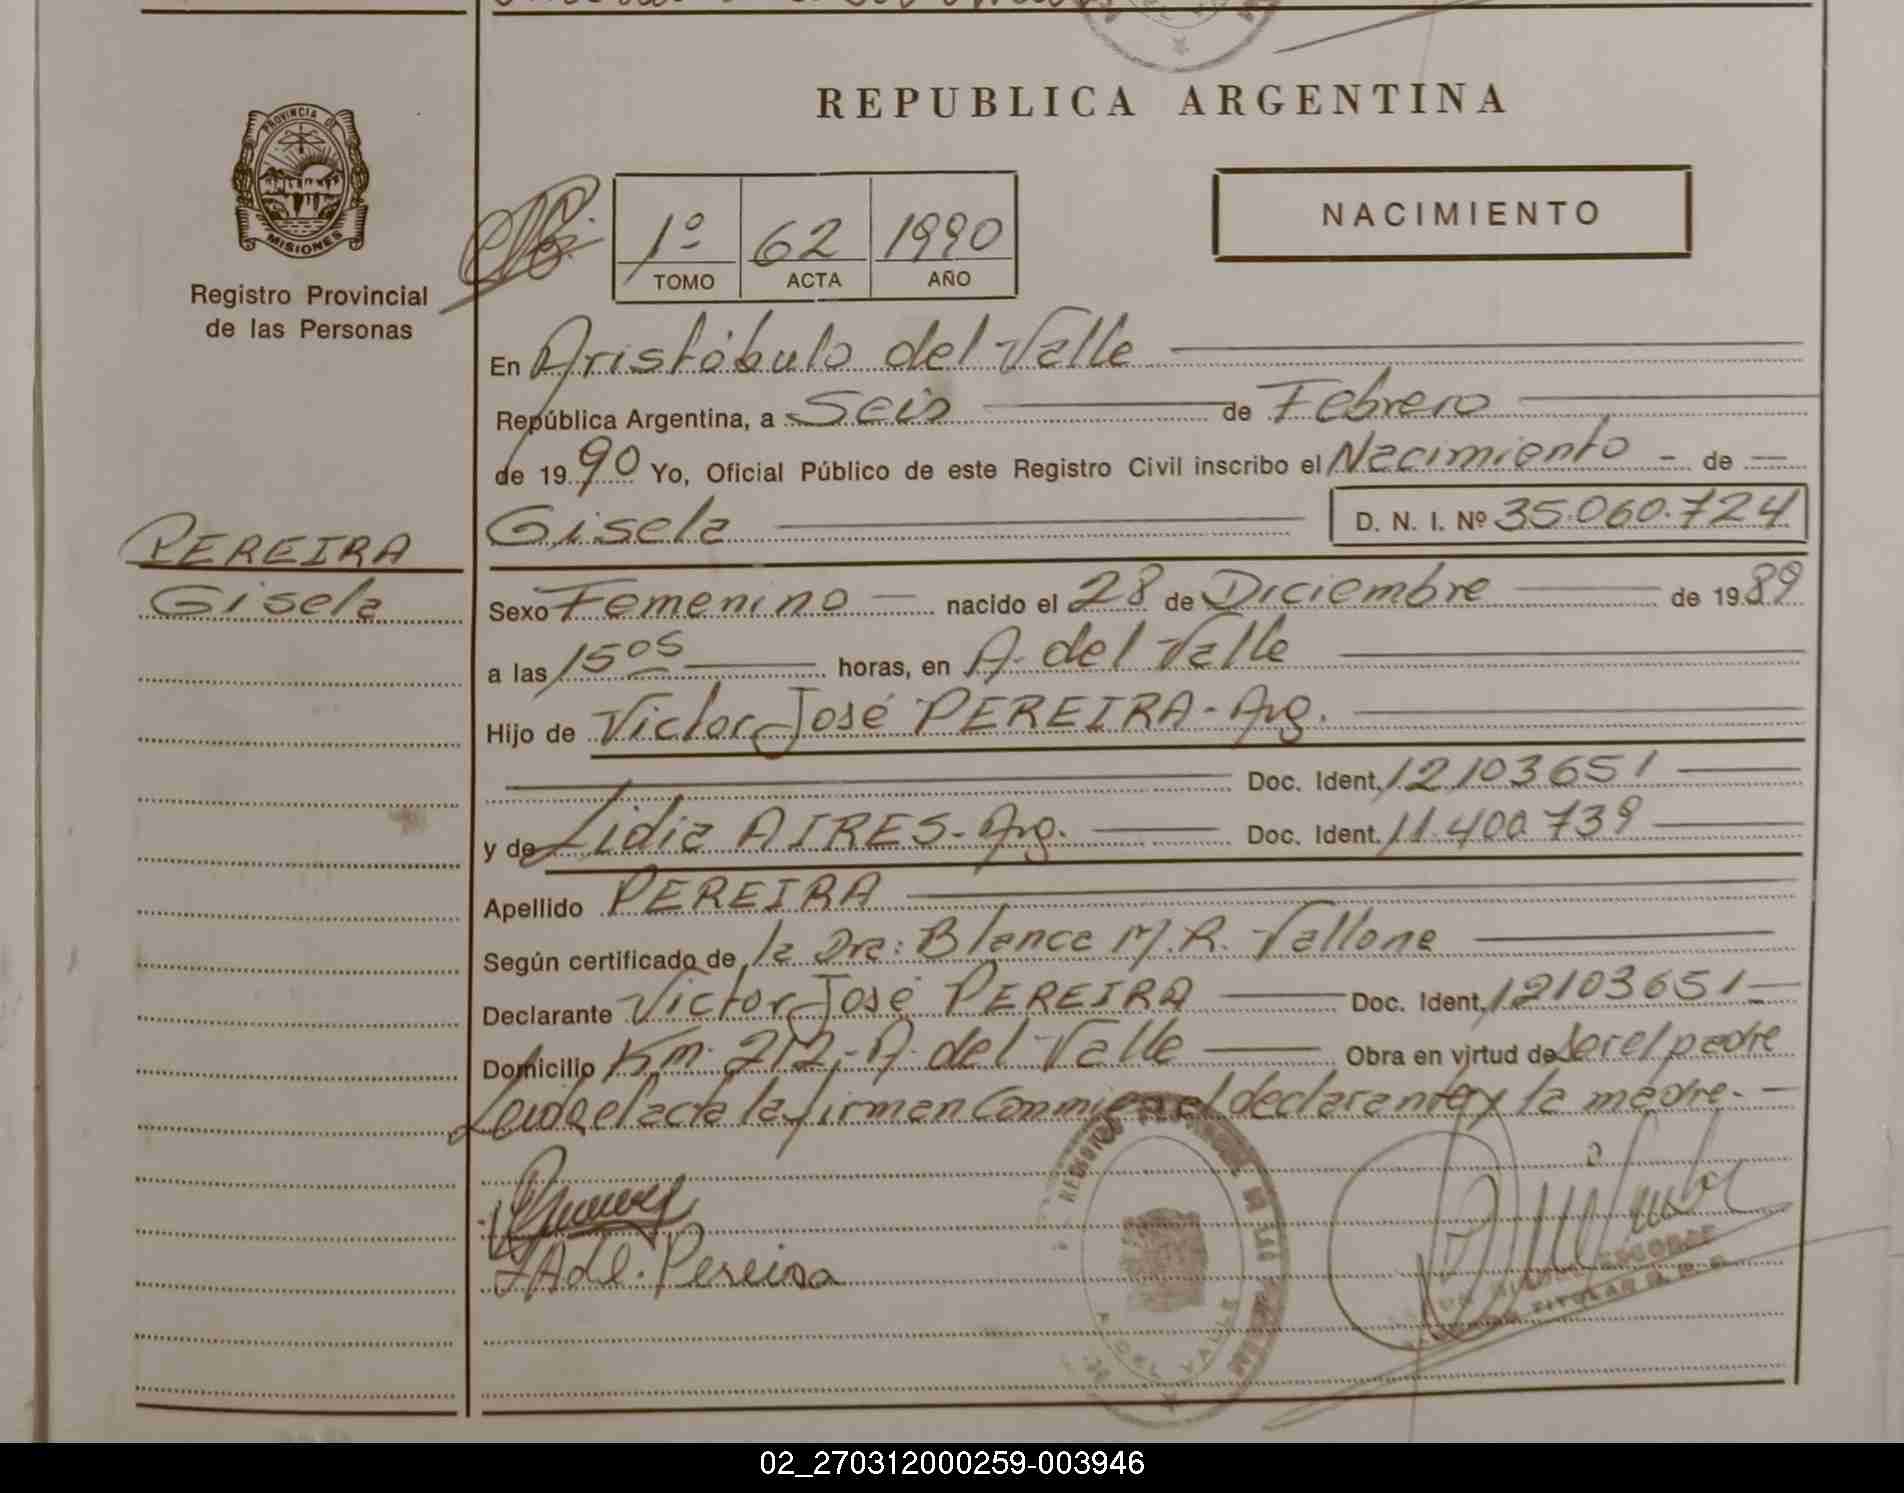 REPUBLICA ARGENTINA
PROVINCIA DE
MISIONES
Registro Provincial
de las Personas
1º 62 1990
TOMO ACTA AÑO
NACIMIENTO
En Aristóbulo del Valle
República Argentina, a Seis de Febrero
de 1990 Yo, Oficial Público de este Registro Civil inscribo el Nacimiento - de —
Gisela D. N. I. Nº 35.060.724
PEREIRA
Gisela
Sexo Femenino nacido el 28 de Diciembre de 1989
a las 15 05 horas, en A. del Valle
Hijo de Victor José PEREIRA - Arg.
Doc. Ident. 12103651
y de Lidia AIRES - Arg. Doc. Ident. 11.400.739
Apellido PEREIRA
Según certificado de la Dra: Blanca M. R. Vallone
Declarante Victor José PEREIRA Doc. Ident. 12103651
Domicilio Km. 212,- A. del Valle Obra en virtud de ser el padre
Leida el acta la firman conmigo el declarante y la madre.-
Pereira
A. DEL VALLE
TITULAR
02_270312000259-003946